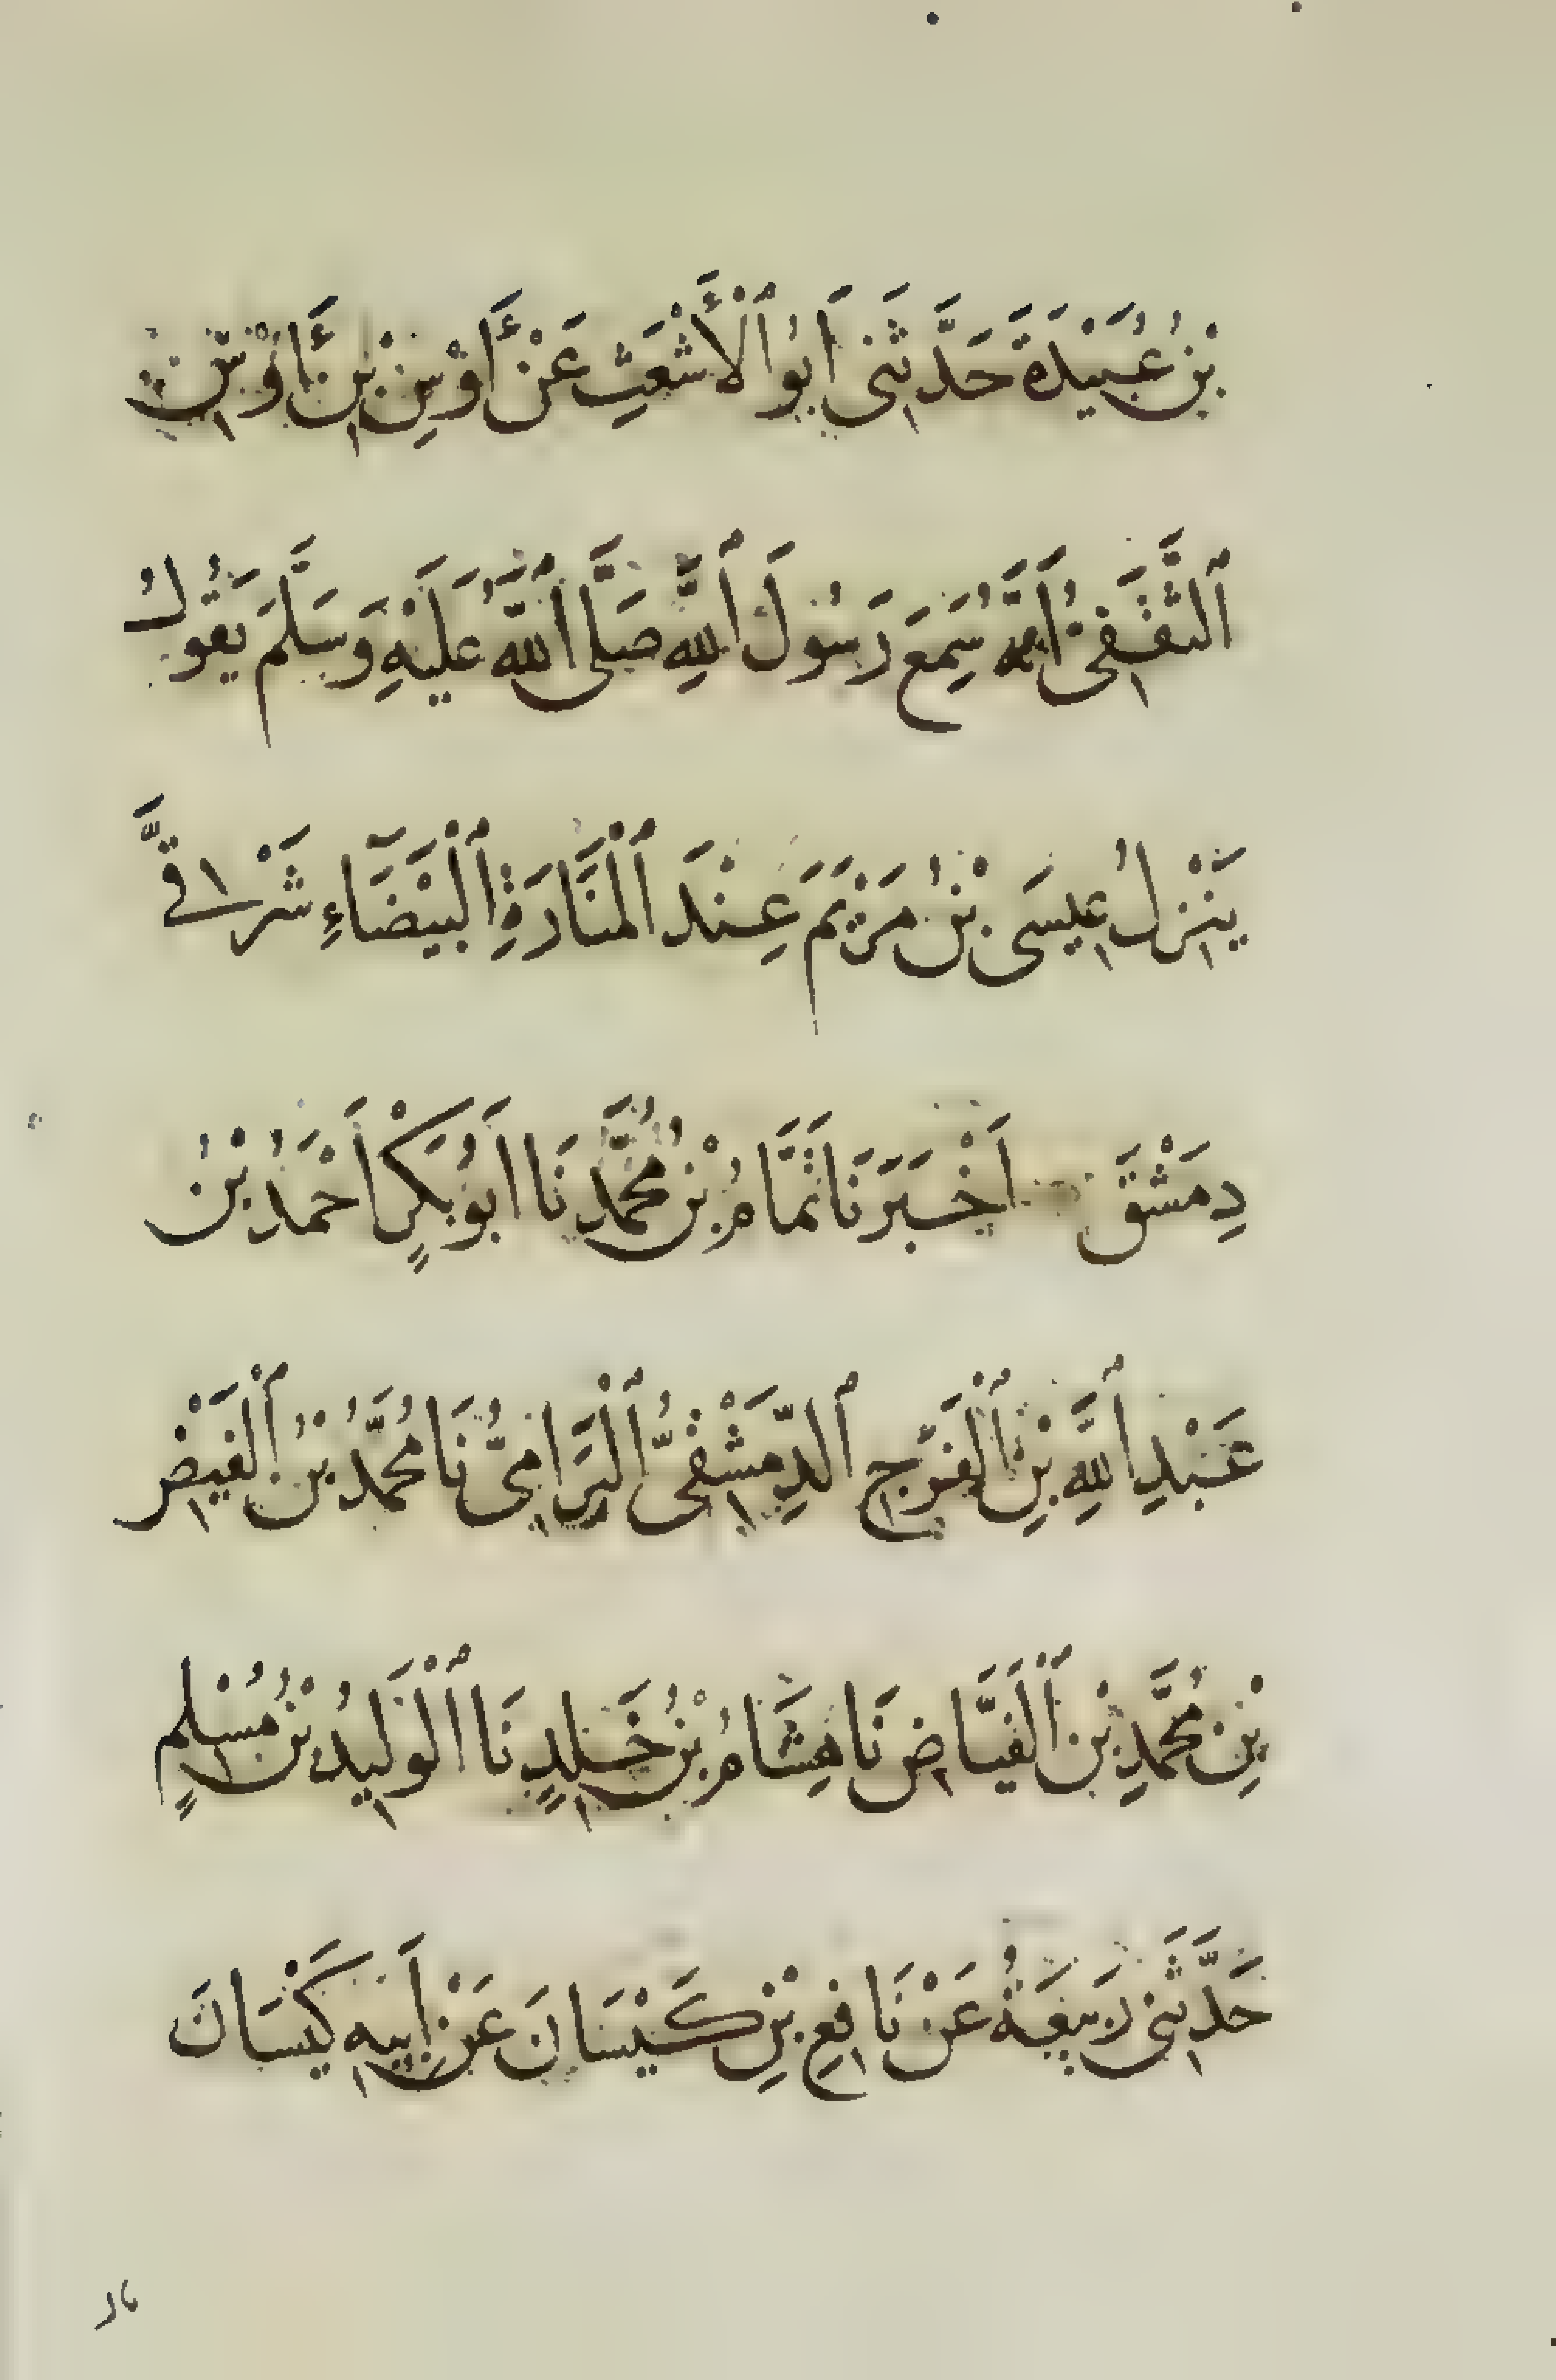 بْنُ عُبَيْدَةَ حَدَّثَنِي أَبُو ٱلْأَشْعَثِ عَنْ أَوْسِ بْنِ أَوْسٍ
ٱلثَّقَفِيُّ أَنَّهُ سَمِعَ رَسُولَ ٱللَّهِ صَلَّى ٱللَّهُ عَلَيْهِ وَسَلَّمَ يَقُولُ
يَنْزِلُ عِيسَى بْنُ مَرْيَمَ عِنْدَ ٱلْمَنَارَةِ ٱلْبَيْضَاءِ شَرْقِيَّ
دِمَشْقَ أَخْبَرَنَا تَمَّامُ بْنُ مُحَمَّدٍ نَا أَبُو بَكْرٍ أَحْمَدُ بْنُ
عَبْدِ ٱللَّهِ بْنِ ٱلْفَرَجِ ٱلدِّمَشْقِيُّ ٱلْبَرَامِيُّ نَا مُحَمَّدُ بْنُ ٱلْفَيْضِ
بْنِ مُحَمَّدِ بْنِ ٱلْفَيَّاضِ نَا هِشَامُ بْنُ خَلِدٍ نَا ٱلْوَلِيدُ بْنُ مُسْلِمٍ
حَدَّثَنِي رَبِيعَةُ عَنْ نَافِعِ بْنِ كَيْسَانَ عَنْ أَبِيهِ كَيْسَانَ